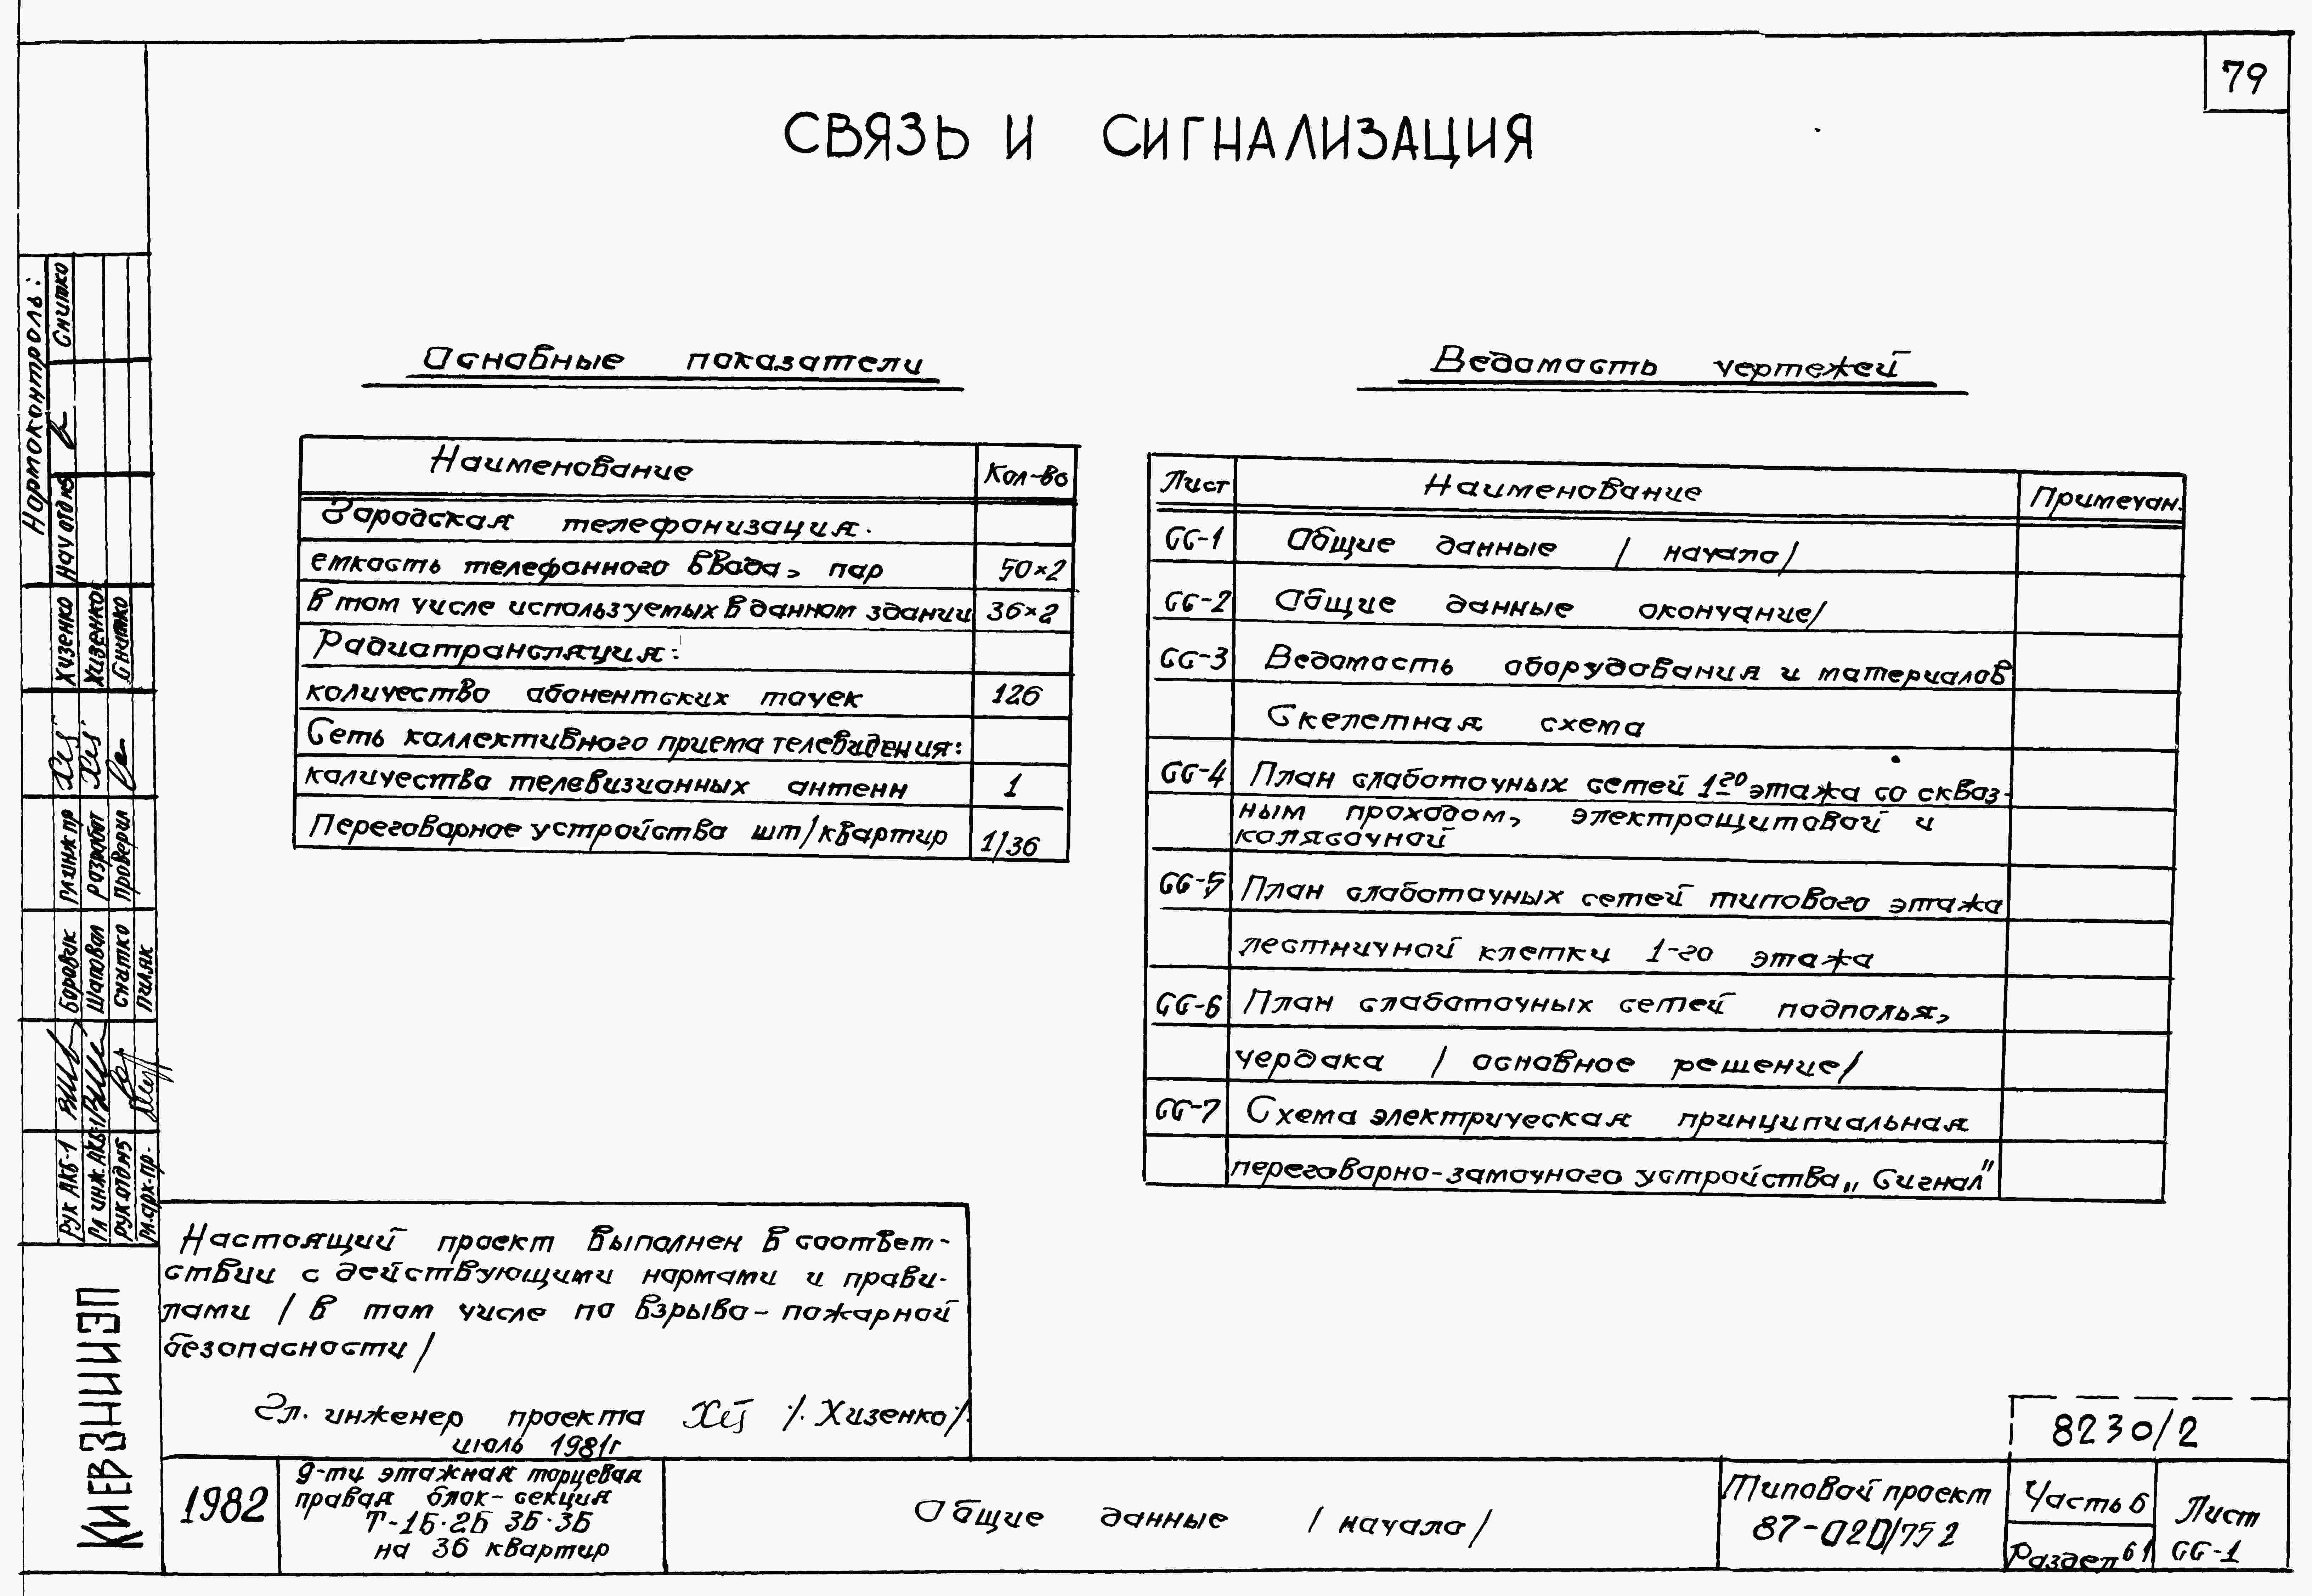 79
СВЯЗЬ И СИГНАЛИЗАЦИЯ
Основные показатели
Наименование Кол-во
Городская телефонизация.
емкость телефонного ввода, пар 50×2
в том числе используемых в данном здании 36×2
Радиотрансляция:
количество абонентских точек 126
Сеть коллективного приема телевидения:
количество телевизионных антенн 1
Переговорное устройство шт/квартир 1/36
Ведомость чертежей
Лист Наименование Примечан.
СС-1 Общие данные /начало/
СС-2 Общие данные окончание/
СС-3 Ведомость оборудования и материалов
Скелетная схема
СС-4 План слаботочных сетей 1го этажа со сквоз-
ным проходом, электрощитовой и
колясочной
СС-5 План слаботочных сетей типового этажа
лестничной клетки 1-го этажа
СС-6 План слаботочных сетей подполья,
чердака /основное решение/
СС-7 Схема электрическая принципиальная
переговорно-замочного устройства „Сигнал"
Нормоконтроль:
Нач отд №5 Снитко
Гл инж пр Хизенко
Разработ Хизенко
Проверил Снитко
Рук АКБ-1 Боровик
Гл инж. АКБ-1 Шаповал
Рук.отд №5 Снитко
Гл.арх.пр. Пиляк
КиевЗНИИЭП
Настоящий проект выполнен в соответ-
ствии с действующими нормами и прави-
лами /в том числе по взрыво-пожарной
безопасности/
Гл. инженер проекта /.Хизенко/.
июль 1981г
8230/2
1982
9-ти этажная торцевая
правая блок-секция
Т-1Б·2Б 3Б·3Б
на 36 квартир
Общие данные /начало/
Типовой проект
87-020/75 2
Часть 6
Раздел 6 1
Лист
СС-1